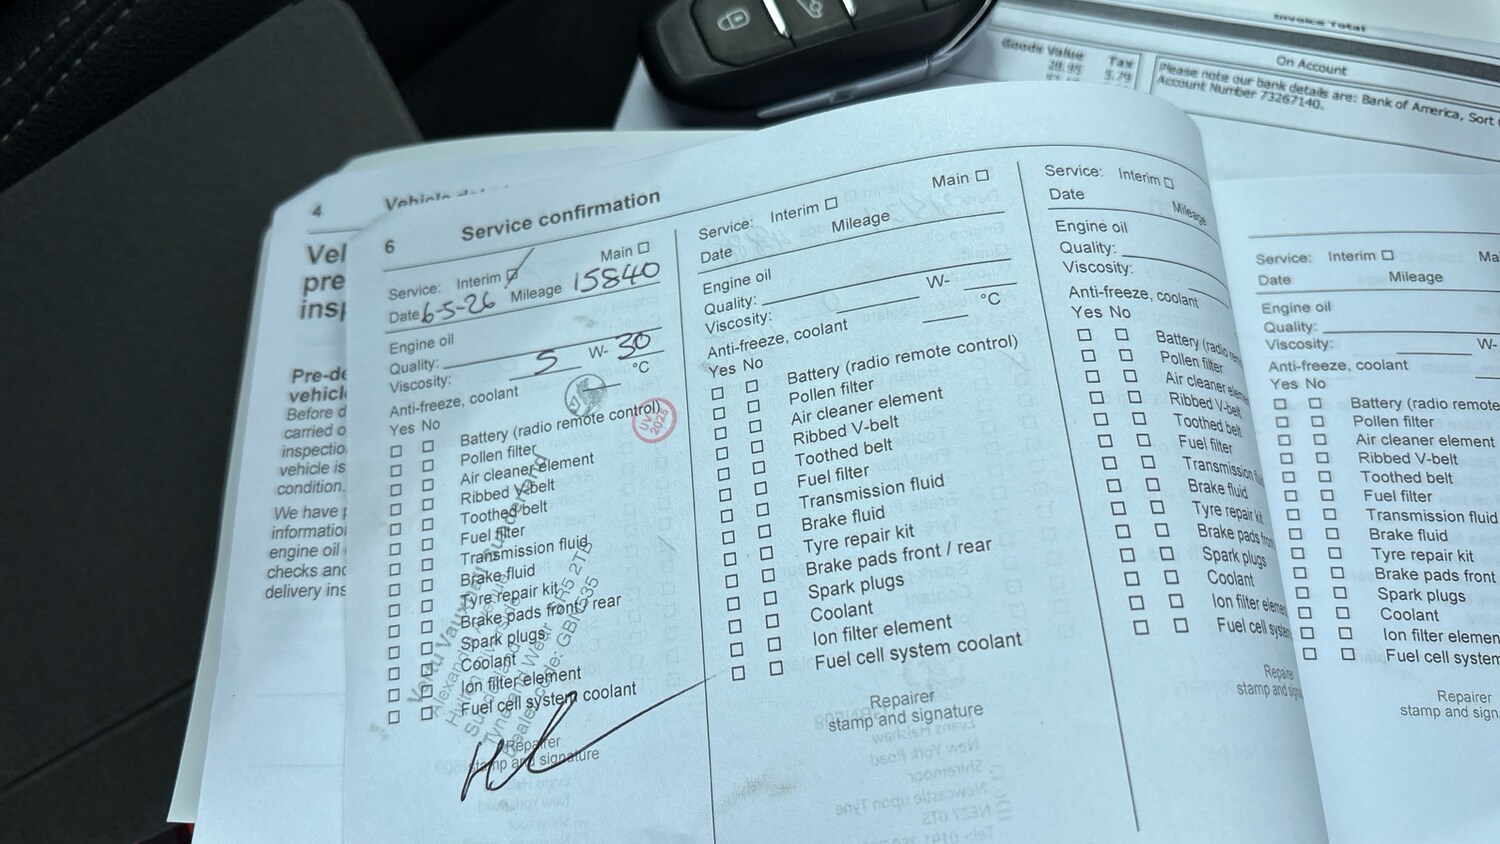 Invoice Total
Goods Value
Tax
28.95
5.79
On Account
Please note our bank details are: Bank of America, Sort
Account Number 73267140.
4
Vehicle
Vel
pre
insp
Pre-de
vehicl
Before d
carried o
inspectio
vehicle is
condition.
We have p
informatio
engine oil
checks and
delivery ins
6 Service confirmation
Service: Interim Main
Date 6-5-26 Mileage 15840
Engine oil
Quality:
Viscosity: 5 W- 30
Anti-freeze, coolant °C
Yes No
Battery (radio remote control)
Pollen filter
Air cleaner element
Ribbed V-belt
Toothed belt
Fuel filter
Transmission fluid
Brake fluid
Tyre repair kit
Brake pads front / rear
Spark plugs
Coolant
Ion filter element
Fuel cell system coolant
Repairer
stamp and signature
UV
2026
Service: Interim Main
Date Mileage
Engine oil
Quality:
Viscosity: W-
Anti-freeze, coolant °C
Yes No
Battery (radio remote control)
Pollen filter
Air cleaner element
Ribbed V-belt
Toothed belt
Fuel filter
Transmission fluid
Brake fluid
Tyre repair kit
Brake pads front / rear
Spark plugs
Coolant
Ion filter element
Fuel cell system coolant
Repairer
stamp and signature
Service: Interim
Date Mileage
Engine oil
Quality:
Viscosity:
Anti-freeze, coolant
Yes No
Battery (radio
Pollen filter
Air cleaner eleme
Ribbed V-belt
Toothed belt
Fuel filter
Transmission
Brake fluid
Tyre repair kit
Brake pads fron
Spark plugs
Coolant
Ion filter eleme
Fuel cell syste
Repaire
stamp and signa
Service: Interim Ma
Date Mileage
Engine oil
Quality:
Viscosity: W-
Anti-freeze, coolant
Yes No
Battery (radio remote
Pollen filter
Air cleaner element
Ribbed V-belt
Toothed belt
Fuel filter
Transmission fluid
Brake fluid
Tyre repair kit
Brake pads front
Spark plugs
Coolant
Ion filter elemen
Fuel cell system
Repairer
stamp and sign